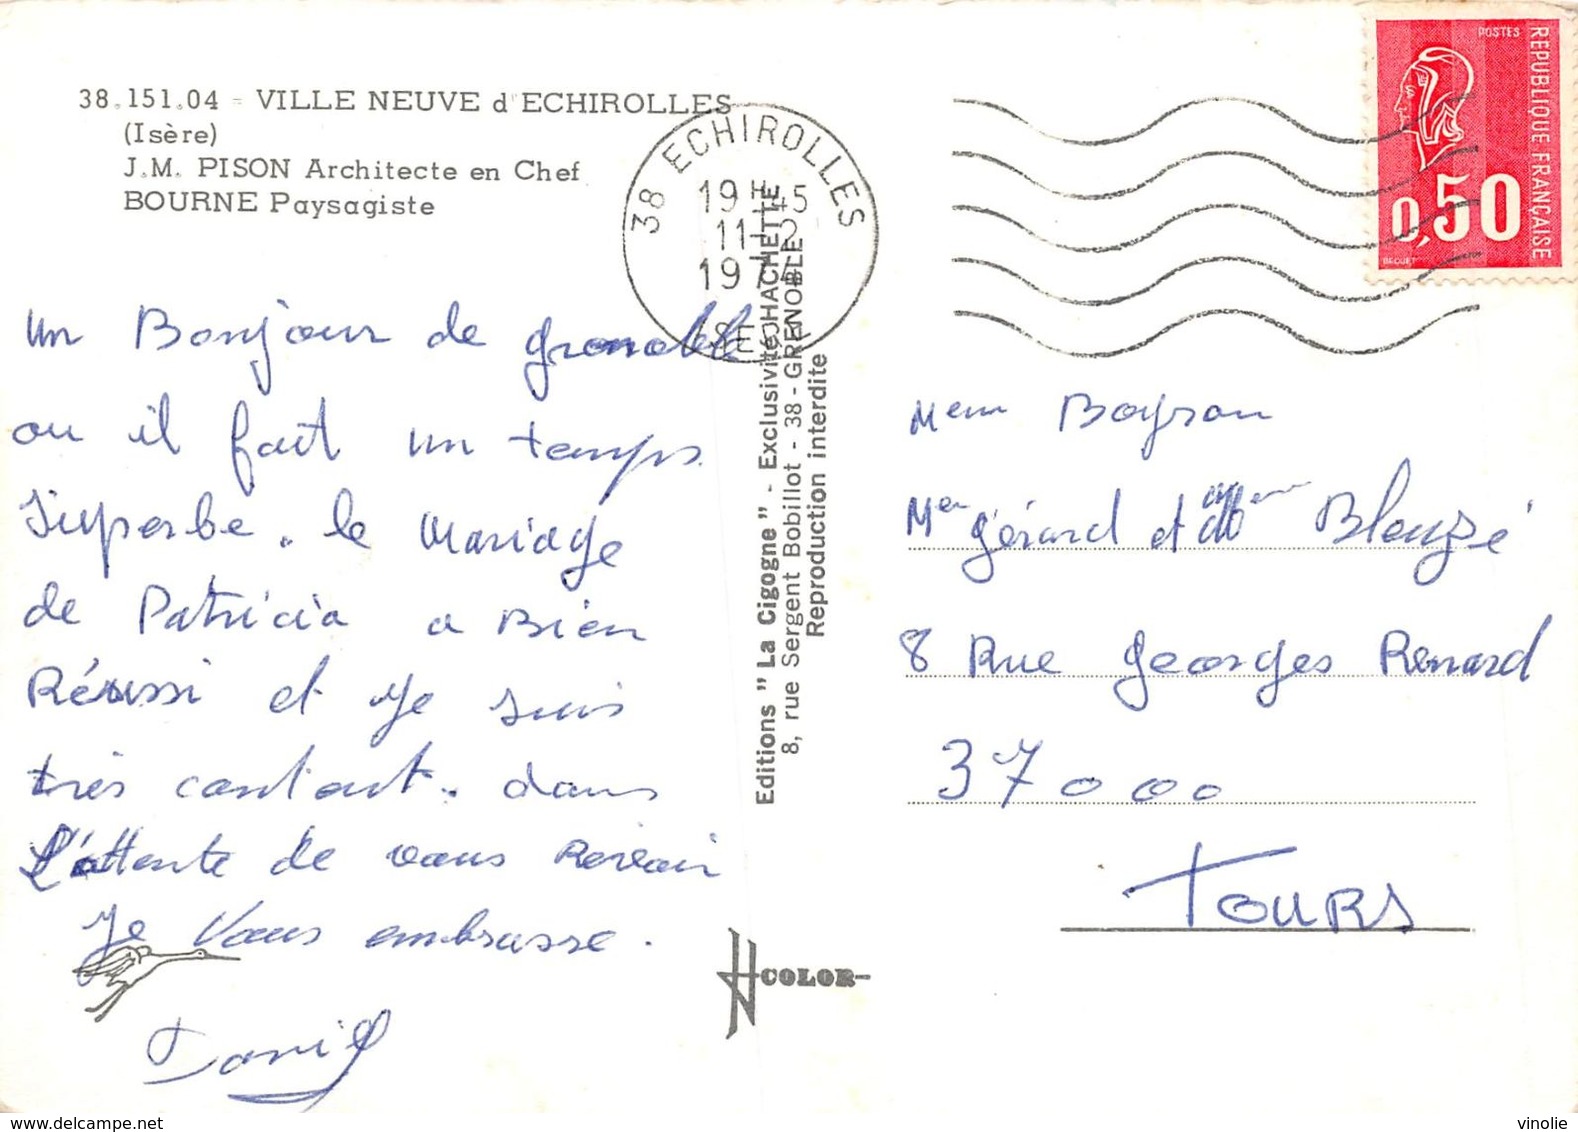 38.151.04 - VILLE NEUVE d'ECHIROLLES
(Isère)
J.M. PISON Architecte en Chef
BOURNE Paysagiste
38 ECHIROLLES
19H45
11-2
1974
POSTES
REPUBLIQUE FRANÇAISE
0,50
BEQUET
un Bonjour de grenoble
ou il fait un temps
superbe. le mariage
de Patricia a Bien
Réussi et je suis
très content. dans
L'attente de vous Revoir
je vous embrasse.
Daniel
Editions " La Cigogne " - Exclusivité HACHETTE
8, rue Sergent Bobillot - 38 - GRENOBLE
Reproduction interdite
COLOR
Gérard et
8 Rue georges Renard
37000
TOURS
delcampe.net
vinolie